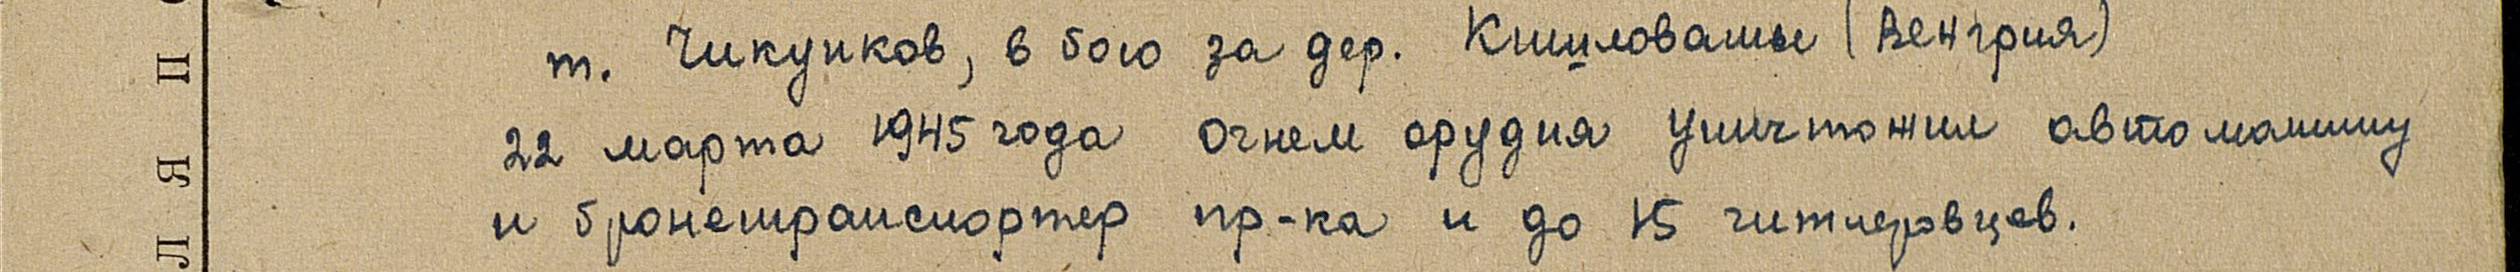 т. Чикунков, в бою за дер. Кишловашы (Венгрия)
22 марта 1945 года огнем орудия уничтожил автомашину
и бронетранспортер пр-ка и до 15 гитлеровцев.
П
Я
Л